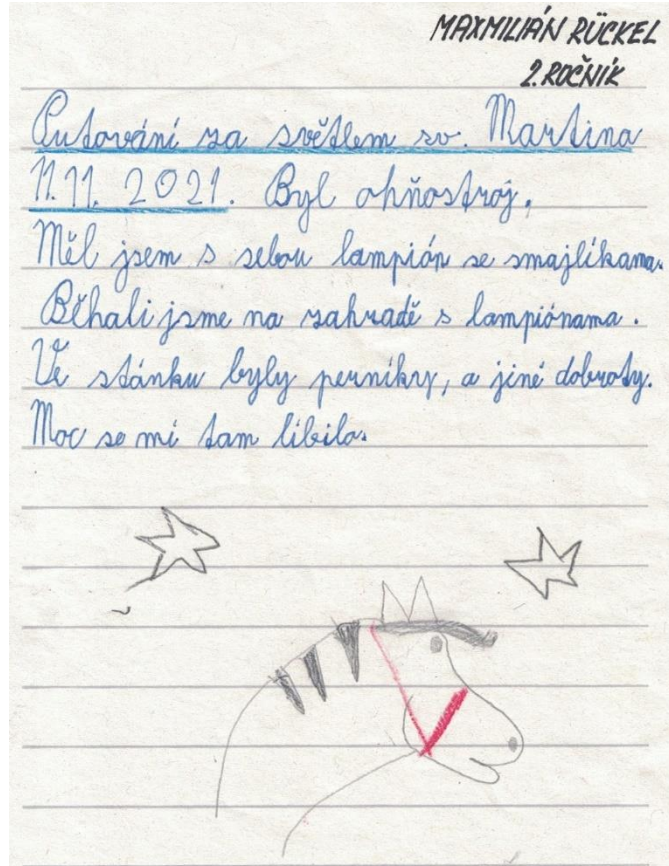 MAXMILIÁN RÜCKEL
2. ROČNÍK
Putování za světlem sv. Martina
11. 11. 2021. Byl ohňostroj.
Měl jsem s sebou lampión se smajlíkama.
Běhali jsme na zahradě s lampiónama.
Ve stánku byly perníkry, a jiné dobroty.
Moc se mi tam líbilo.